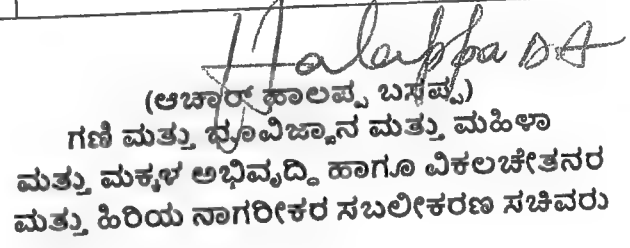 Halappa DA
(ಆಚಾರ್ ಹಾಲಪ್ಪ ಬಸಪ್ಪ)
ಗಣಿ ಮತ್ತು ಭೂವಿಜ್ಞಾನ ಮತ್ತು ಮಹಿಳಾ
ಮತ್ತು ಮಕ್ಕಳ ಅಭಿವೃದ್ದಿ ಹಾಗೂ ವಿಕಲಚೇತನರ
ಮತ್ತು ಹಿರಿಯ ನಾಗರೀಕರ ಸಬಲೀಕರಣ ಸಚಿವರು